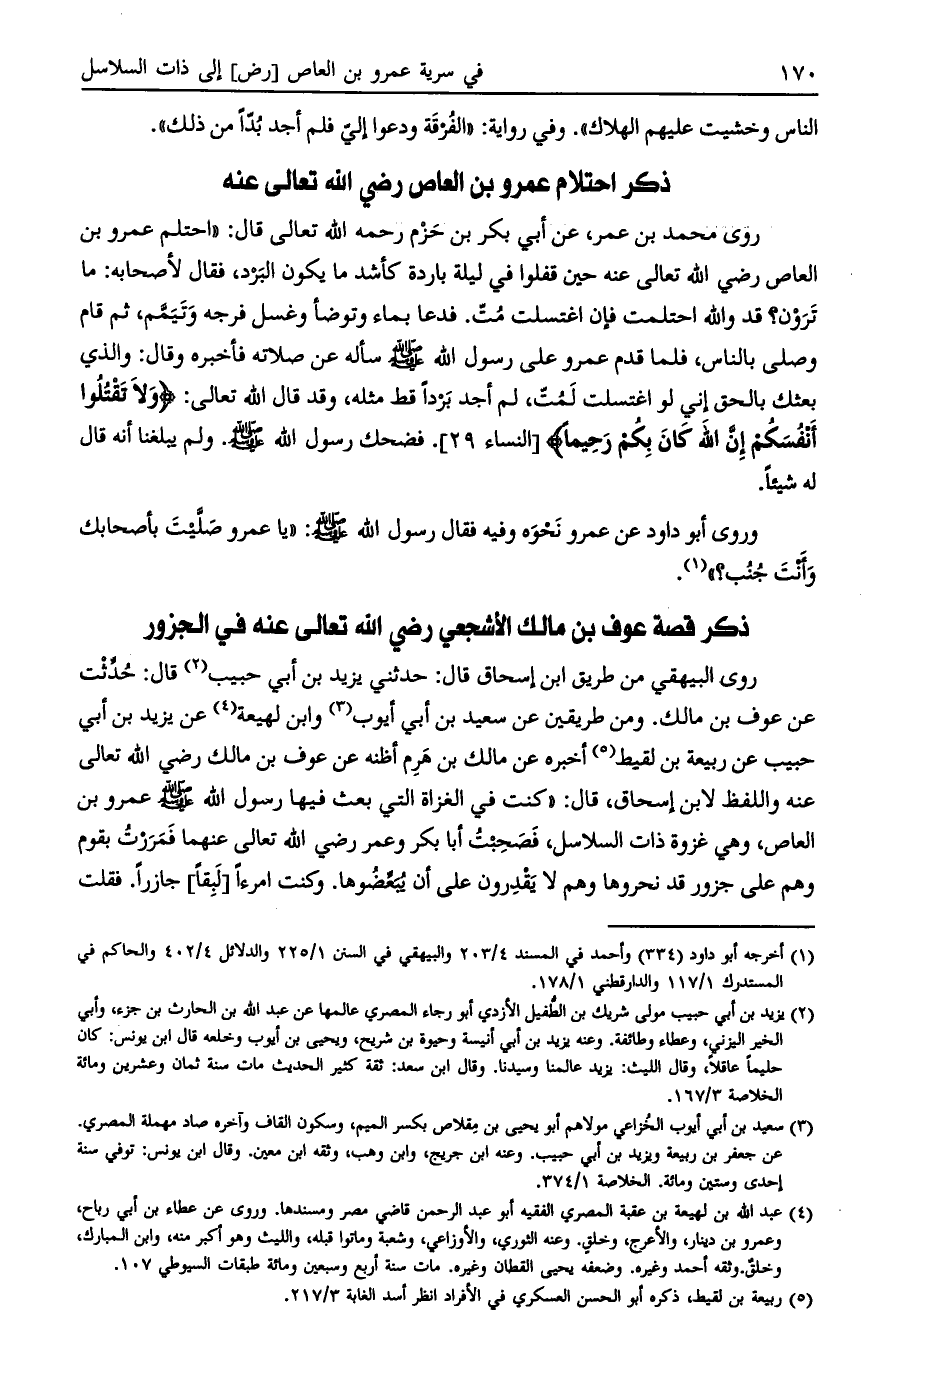 ١٧٠ في سرية عمرو بن العاص [رض] إلى ذات السلاسل
الناس وخشيت عليهم الهلاك». وفي رواية: «الفُرْقَة ودعوا إليّ فلم أجد بُدّاً من ذلك».
ذكر احتلام عمرو بن العاص رضي الله تعالى عنه
روى محمد بن عمر، عن أبي بكر بن حَزْم رحمه الله تعالى قال: «احتلم عمرو بن
العاص رضي الله تعالى عنه حين قفلوا في ليلة باردة كأشد ما يكون البَرْد، فقال لأصحابه: ما
تَرَوْن؟ قد والله احتلمت فإن اغتسلت مُتّ. فدعا بماء وتوضأ وغسل فرجه وَتَيَمَّم، ثم قام
وصلى بالناس، فلما قدم عمرو على رسول الله ﷺ سأله عن صلاته فأخبره وقال: والذي
بعثك بالحق إني لو اغتسلت لَمُتّ، لم أجد بَرْداً قط مثله، وقد قال الله تعالى: ﴿وَلاَ تَقْتُلُوا
أَنْفُسَكُمْ إِنَّ اللهَ كَانَ بِكُمْ رَحِيماً﴾ [النساء ٢٩]. فضحك رسول الله ﷺ. ولم يبلغنا أنه قال
له شيئاً.
وروى أبو داود عن عمرو نَحْوَه وفيه فقال رسول الله ﷺ: «يا عمرو صَلَّيْتَ بأصحابك
وَأَنْتَ جُنُب؟»(١).
ذكر قصة عوف بن مالك الأشجعي رضي الله تعالى عنه في الجزور
روى البيهقي من طريق ابن إسحاق قال: حدثني يزيد بن أبي حبيب(٢) قال: حُدِّثْت
عن عوف بن مالك. ومن طريقين عن سعيد بن أبي أيوب(٣) وابن لهيعة(٤) عن يزيد بن أبي
حبيب عن ربيعة بن لقيط(٥) أخبره عن مالك بن هَرِم أظنه عن عوف بن مالك رضي الله تعالى
عنه واللفظ لابن إسحاق، قال: «كنت في الغزاة التي بعث فيها رسول الله ﷺ عمرو بن
العاص، وهي غزوة ذات السلاسل، فَصَحِبْتُ أبا بكر وعمر رضي الله تعالى عنهما فَمَرَرْتُ بقوم
وهم على جزور قد نحروها وهم لا يَقْدِرون على أن يُبَعِّضُوها. وكنت امرءاً [لَبِقاً] جازراً. فقلت
(١) أخرجه أبو داود (٣٣٤) وأحمد في المسند ٢٠٣/٤ والبيهقي في السنن ٢٢٥/١ والدلائل ٤٠٢/٤ والحاكم في
المستدرك ١١٧/١ والدارقطني ١٧٨/١.
(٢) يزيد بن أبي حبيب مولى شريك بن الطُّفيل الأزدي أبو رجاء المصري عالمها عن عبد الله بن الحارث بن جزء، وأبي
الخير اليزني، وعطاء وطائفة. وعنه يزيد بن أبي أنيسة وحيوة بن شريح، ويحيى بن أيوب وخلعه قال ابن يونس: كان
حليماً عاقلاً، وقال الليث: يزيد عالمنا وسيدنا. وقال ابن سعد: ثقة كثير الحديث مات سنة ثمان وعشرين ومائة
الخلاصة ١٦٧/٣.
(٣) سعيد بن أبي أيوب الخُزاعي مولاهم أبو يحيى بن مِقلاص بكسر الميم، وسكون القاف وآخره صاد مهملة المصري.
عن جعفر بن ربيعة ويزيد بن أبي حبيب. وعنه ابن جريج، وابن وهب، وثقه ابن معين. وقال ابن يونس: توفي سنة
إحدى وستين ومائة. الخلاصة ٣٧٤/١.
(٤) عبد الله بن لهيعة بن عقبة المصري الفقيه أبو عبد الرحمن قاضي مصر ومسندها. وروى عن عطاء بن أبي رباح،
وعمرو بن دينار، والأعرج، وخلق. وعنه الثوري، والأوزاعي، وشعبة وماتوا قبله، والليث وهو أكبر منه، وابن المبارك،
وخلقٌ.وثقه أحمد وغيره. وضعفه يحيى القطان وغيره. مات سنة أربع وسبعين ومائة طبقات السيوطي ١٠٧.
(٥) ربيعة بن لقيط، ذكره أبو الحسن العسكري في الأفراد انظر أسد الغابة ٢١٧/٣.